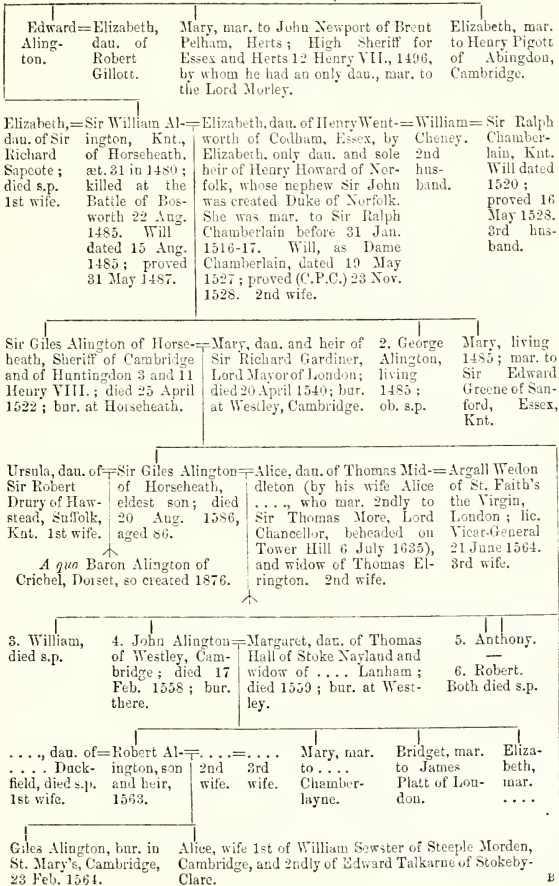 Edward=Elizabeth,
Aling-
ton.
dau. of
Robert
Gillott.
Mary, mar. to John Newport of Brent
Pelham, Herts; High Sheriff for
Essex and Herts 12 Henry VII., 1496,
by whom he had an only dau., mar. to
the Lord Morley.
Elizabeth, mar.
to Henry Pigott
of Abingdon,
Cambridge.
Elizabeth,=
dau. of Sir
Richard
Sapcote;
died s.p.
1st wife.
Sir William Al-
ington, Knt.,
of Horseheath,
æt. 31 in 1480;
killed at the
Battle of Bos-
worth 22 Aug.
1485. Will
dated 15 Aug.
1485; proved
31 May 1487.
Elizabeth, dau. of Henry Went-
worth of Codham, Essex, by
Elizabeth, only dau. and sole
heir of Henry Howard of Nor-
folk, whose nephew Sir John
was created Duke of Norfolk.
She was mar. to Sir Ralph
Chamberlain before 31 Jan.
1516-17. Will, as Dame
Chamberlain, dated 19 May
1527; proved (C.P.C.) 23 Nov.
1528. 2nd wife.
=William=
Cheney.
2nd
hus-
band.
Sir Ralph
Chamber-
lain, Knt.
Will dated
1520;
proved 16
May 1528.
3rd hus-
band.
Sir Giles Alington of Horse-
heath, Sheriff of Cambridge
and of Huntingdon 3 and 11
Henry VIII.; died 25 April
1522; bur. at Horseheath.
=Mary, dau. and heir of
Sir Richard Gardiner,
Lord Mayor of London;
died 20 April 1540; bur.
at Westley, Cambridge.
2. George
Alington,
living
1485;
ob. s.p.
Mary, living
1485; mar. to
Sir Edward
Greene of San-
ford, Essex,
Knt.
Ursula, dau. of
Sir Robert
Drury of Haw-
stead, Suffolk,
Knt. 1st wife.
=Sir Giles Alington=
of Horseheath,
eldest son; died
20 Aug. 1586,
aged 86.
Alice, dau. of Thomas Mid-
dleton (by his wife Alice
...., who mar. 2ndly to
Sir Thomas More, Lord
Chancellor, beheaded on
Tower Hill 6 July 1635),
and widow of Thomas El-
rington. 2nd wife.
=Argall Wedon
of St. Faith's
the Virgin,
London; lic.
Vicar-General
21 June 1564.
3rd wife.
A quo Baron Alington of
Crichel, Dorset, so created 1876.
3. William,
died s.p.
4. John Alington
of Westley, Cam-
bridge; died 17
Feb. 1558; bur.
there.
=Margaret, dau. of Thomas
Hall of Stoke Nayland and
widow of .... Lanham;
died 1559; bur. at West-
ley.
5. Anthony.
—
6. Robert.
Both died s.p.
...., dau. of=
.... Duck-
field, died s.p.
1st wife.
Robert Al-
ington, son
and heir,
1563.
=....=
2nd
wife.
....
3rd
wife.
Mary, mar.
to ....
Chamber-
layne.
Bridget, mar.
to James
Platt of Lon-
don.
Eliza-
beth,
mar.
....
Giles Alington, bur. in
St. Mary's, Cambridge,
23 Feb. 1564.
Alice, wife 1st of William Sewster of Steeple Morden,
Cambridge, and 2ndly of Edward Talkarne of Stokeby-
Clare.
B